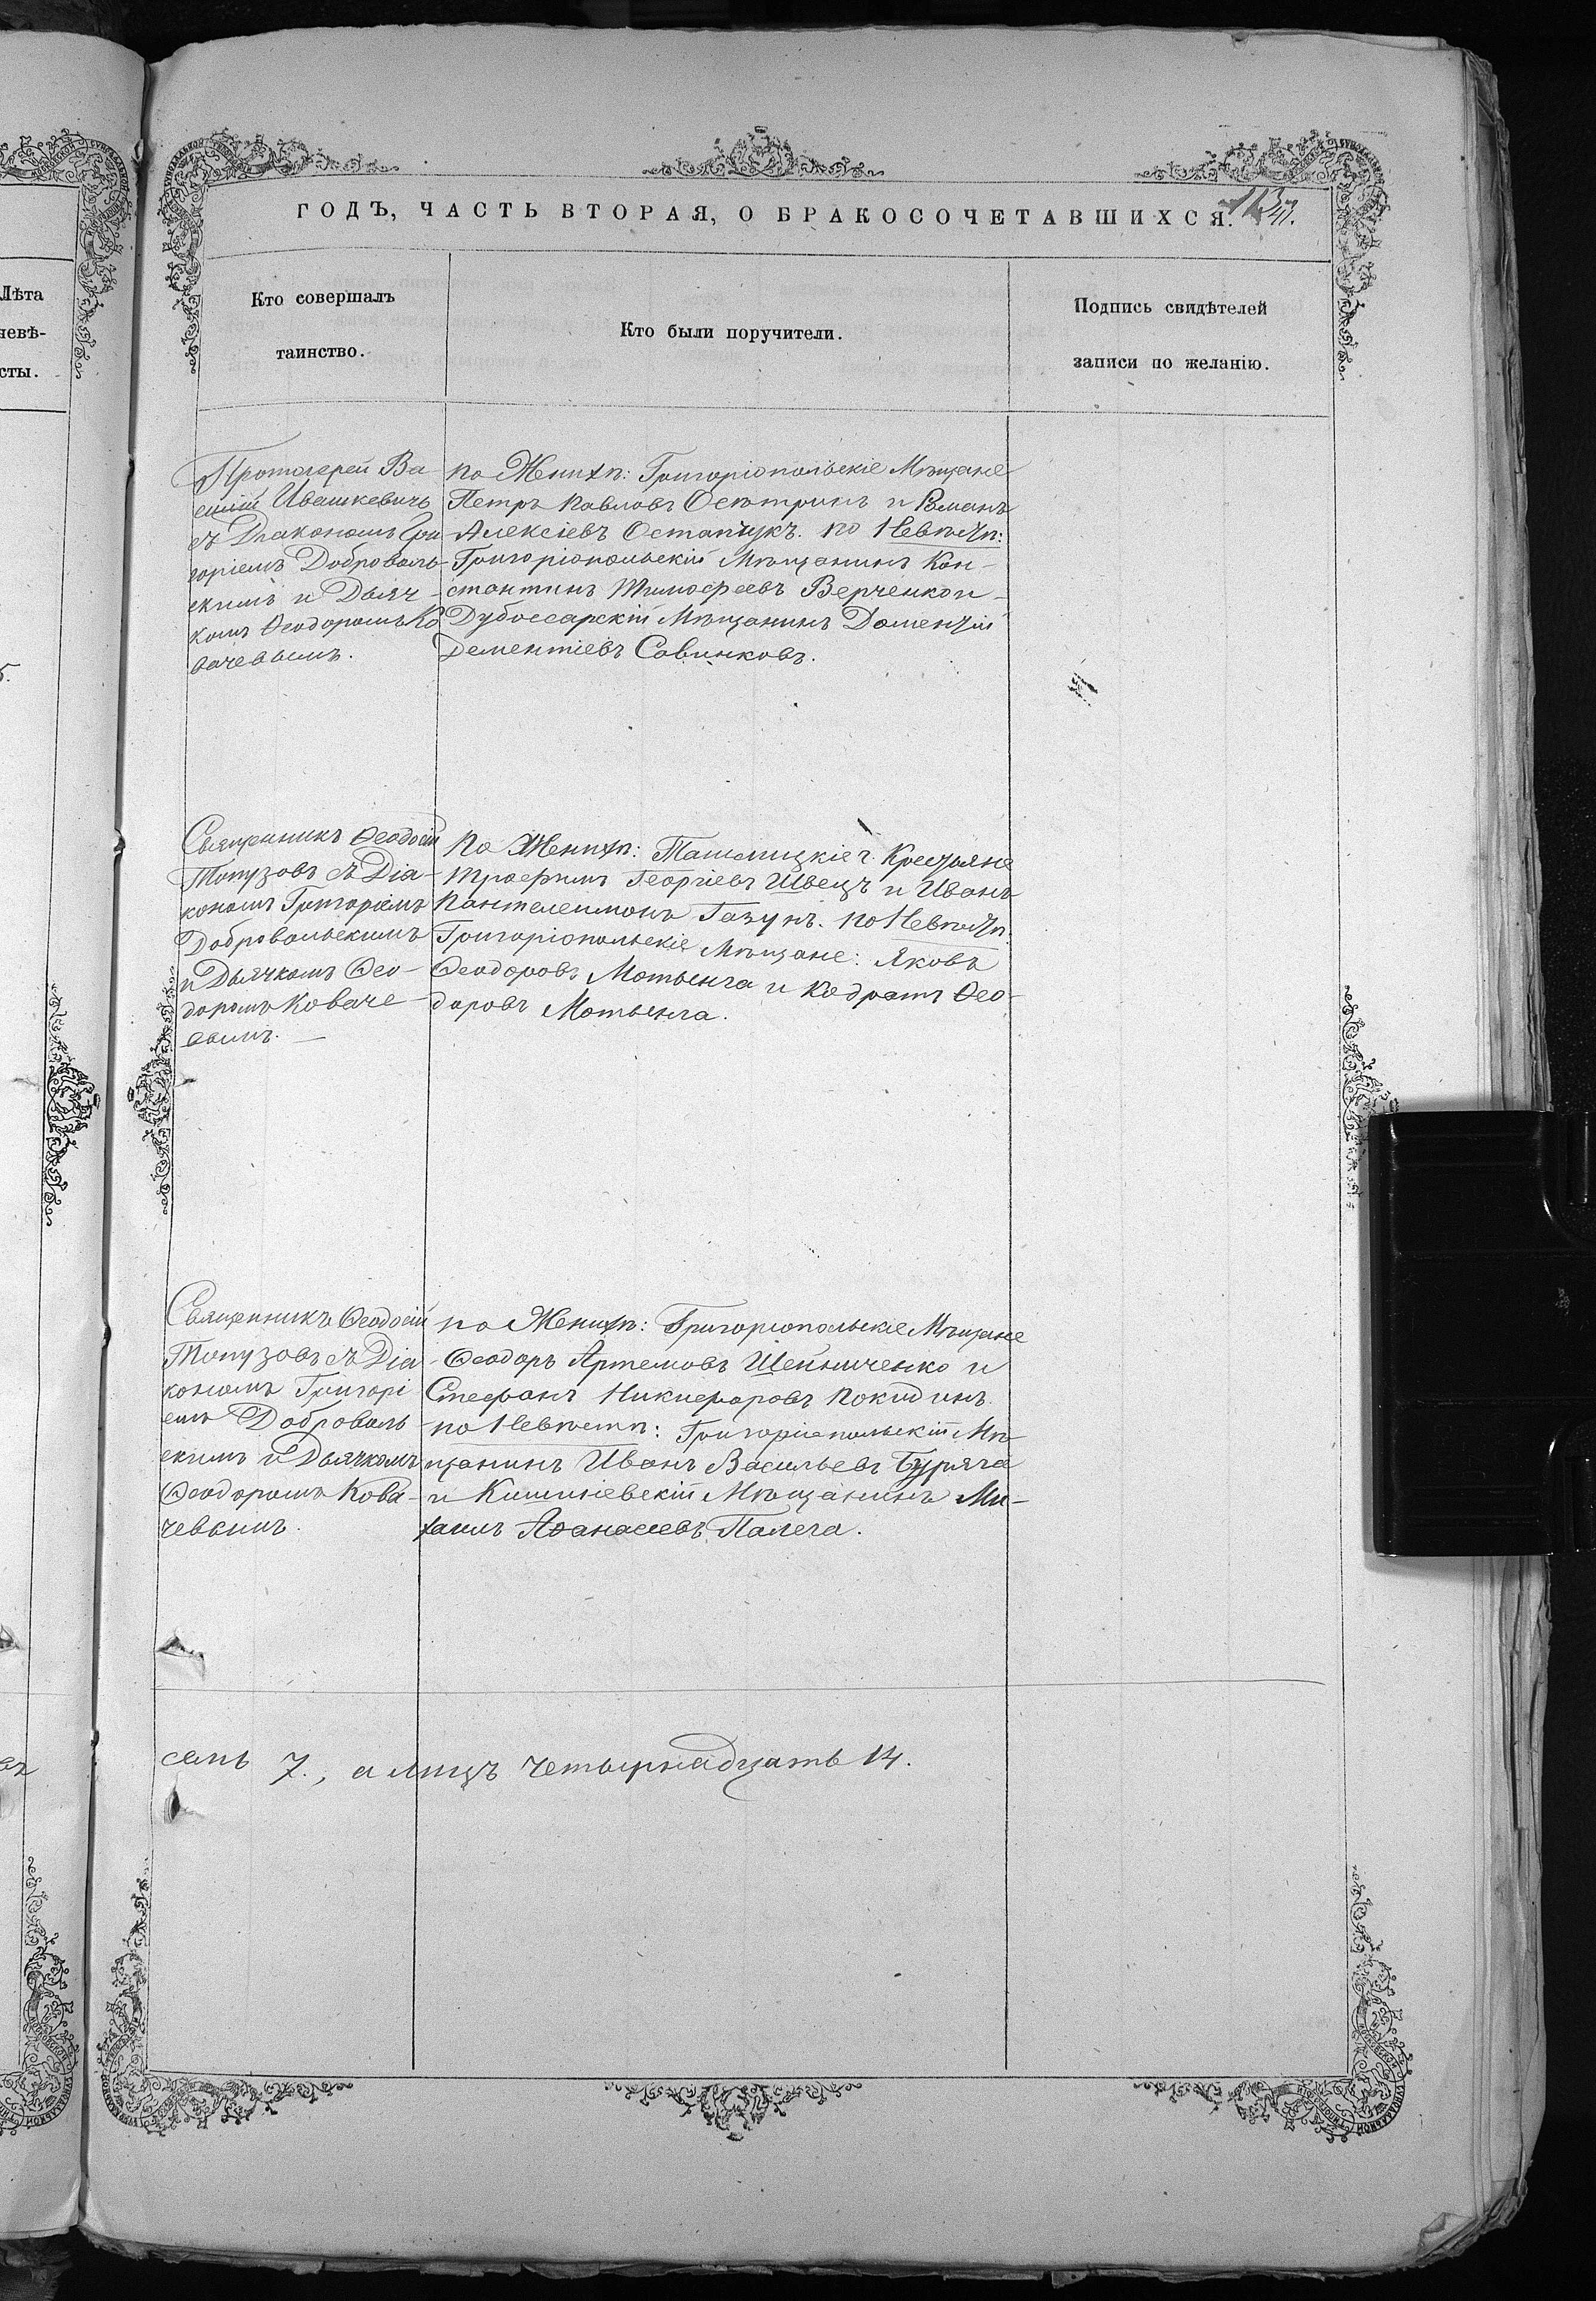 ГОДЪ, ЧАСТЬ ВТОРАЯ, О БРАКОСОЧЕТАВШИХСЯ.
Лѣта
невѣ-
сты.
Кто совершалъ
таинство.
Кто были поручители.
Подпись свидѣтелей
записи по желанію.
Протоіерей Ва
силій Ивашкевичъ
съ Діакономъ Гри
горіемъ Доброволь-
скимъ и Дьяч-
комъ Ѳеодоромъ Ко
вачевымъ.
по Женихѣ: Григоріопольскіе Мѣщане
Петръ Павловъ Осѣтринъ и Романъ
Алексіевъ Остапчукъ. по Невѣстѣ:
Григоріопольскій Мѣщанинъ Кон-
стантинъ Тимофеевъ Верченко и
Дубоссарскій Мѣщанинъ Дементій
Дементіевъ Савинковъ.
Священникъ Ѳеодосій
Топузовъ съ Діа-
кономъ Григоріемъ
Добровольскимъ
и Дьячкомъ Ѳео-
доромъ Коваче-
вымъ. —
по Женихѣ: Ташлицкіе Крестьяне
Трофимъ Георгіевъ Швецъ и Иванъ
Пантелеимонъ Газунъ. по Невѣстѣ:
Григоріопольскіе Мѣщане: Яковъ
Ѳеодоровъ Мотынга и Кодратъ Ѳео-
доровъ Мотынга.
Священникъ Ѳеодосій
Топузовъ съ Діа
кономъ Григорі
емъ Доброволь
скимъ и Дьячкомъ
Ѳеодоромъ Кова-
чевымъ.
по Женихѣ: Григоріопольскіе Мѣщане
Ѳеодоръ Артемовъ Шейниченко и
Стефанъ Никифоровъ Покидинъ
по Невѣстѣ: Григоріопольскій Мѣ-
щанинъ Иванъ Васильевъ Буряга
и Кишиневскій Мѣщанинъ Ми-
хаилъ Аѳанасіевъ Палега.
семь 7., а лицъ четырнадцать 14.